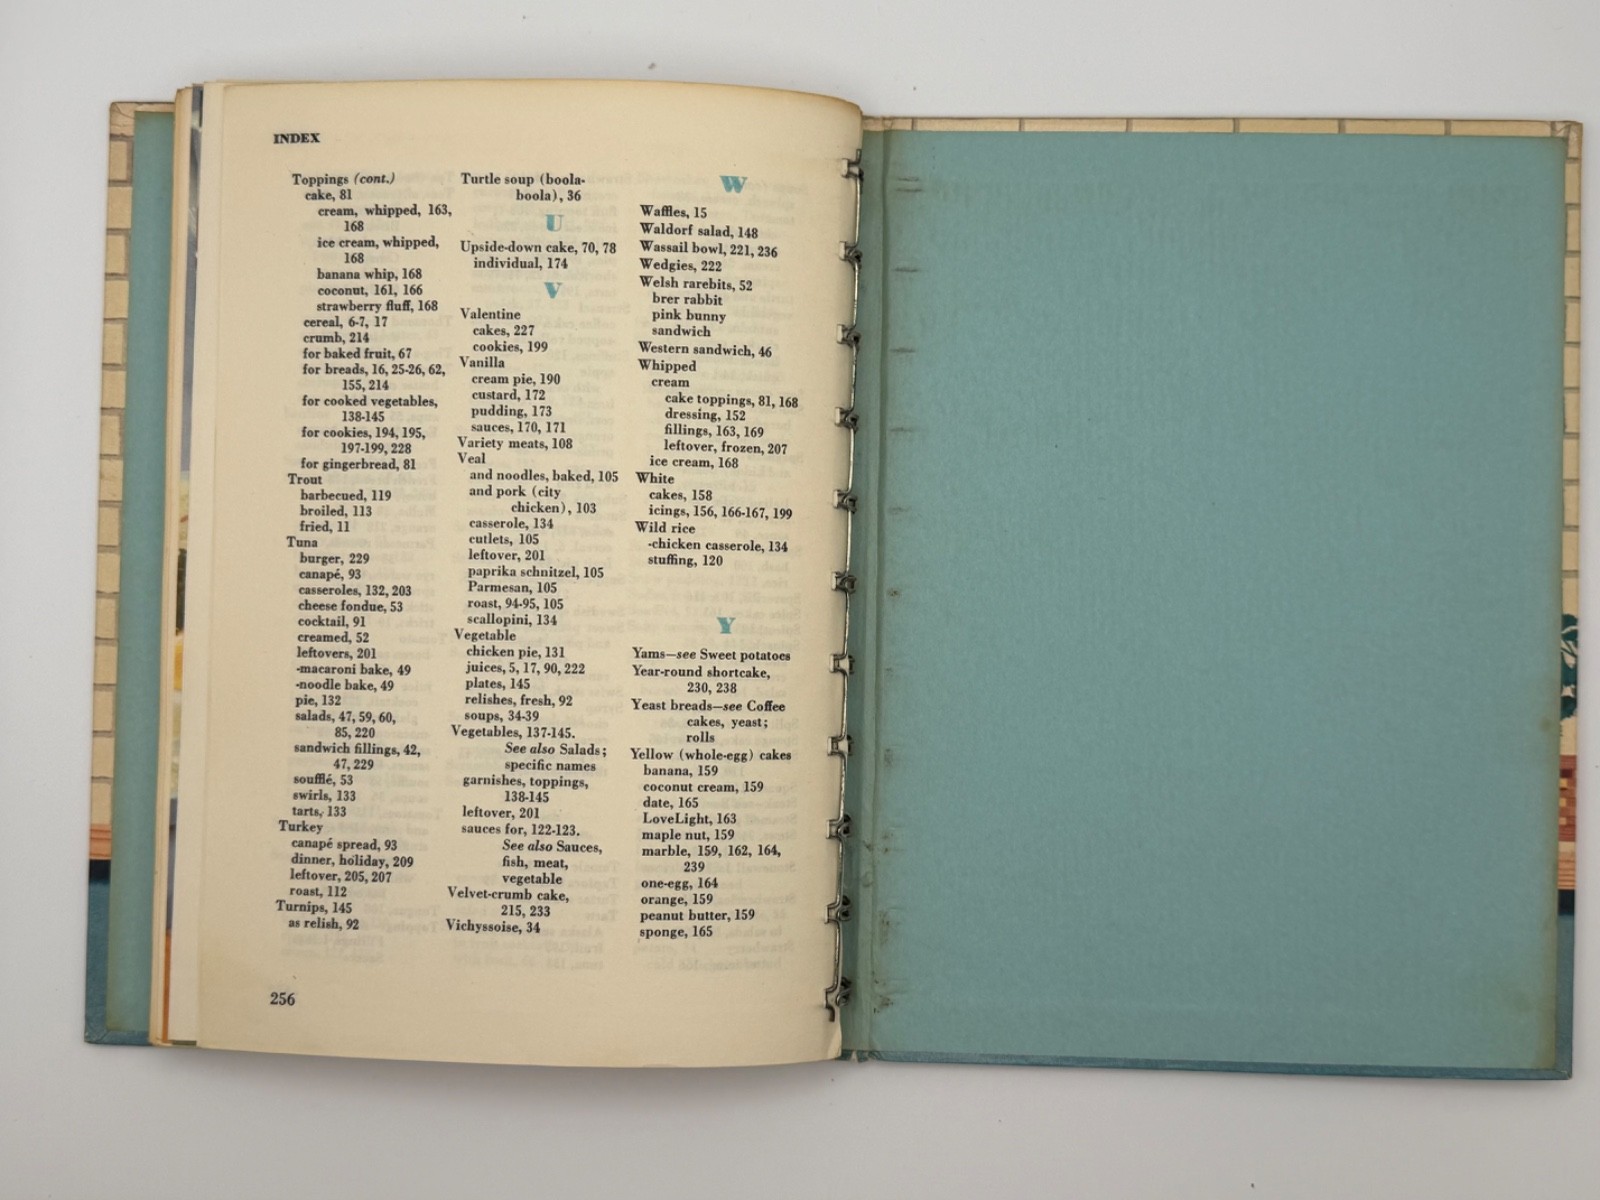 INDEX
Toppings (cont.)
cake, 81
cream, whipped, 163,
168
ice cream, whipped,
168
banana whip, 168
coconut, 161, 166
strawberry fluff, 168
cereal, 6-7, 17
crumb, 214
for baked fruit, 67
for breads, 16, 25-26, 62,
155, 214
for cooked vegetables,
138-145
for cookies, 194, 195,
197-199, 228
for gingerbread, 81
Trout
barbecued, 119
broiled, 113
fried, 11
Tuna
burger, 229
canapé, 93
casseroles, 132, 203
cheese fondue, 53
cocktail, 91
creamed, 52
leftovers, 201
-macaroni bake, 49
-noodle bake, 49
pie, 132
salads, 47, 59, 60,
85, 220
sandwich fillings, 42,
47, 229
soufflé, 53
swirls, 133
tarts, 133
Turkey
canapé spread, 93
dinner, holiday, 209
leftover, 205, 207
roast, 112
Turnips, 145
as relish, 92
Turtle soup (boola-
boola), 36
U
Upside-down cake, 70, 78
individual, 174
V
Valentine
cakes, 227
cookies, 199
Vanilla
cream pie, 190
custard, 172
pudding, 173
sauces, 170, 171
Variety meats, 108
Veal
and noodles, baked, 105
and pork (city
chicken), 103
casserole, 134
cutlets, 105
leftover, 201
paprika schnitzel, 105
Parmesan, 105
roast, 94-95, 105
scallopini, 134
Vegetable
chicken pie, 131
juices, 5, 17, 90, 222
plates, 145
relishes, fresh, 92
soups, 34-39
Vegetables, 137-145.
See also Salads;
specific names
garnishes, toppings,
138-145
leftover, 201
sauces for, 122-123.
See also Sauces,
fish, meat,
vegetable
Velvet-crumb cake,
215, 233
Vichyssoise, 34
W
Waffles, 15
Waldorf salad, 148
Wassail bowl, 221, 236
Wedgies, 222
Welsh rarebits, 52
brer rabbit
pink bunny
sandwich
Western sandwich, 46
Whipped
cream
cake toppings, 81, 168
dressing, 152
fillings, 163, 169
leftover, frozen, 207
ice cream, 168
White
cakes, 158
icings, 156, 166-167, 199
Wild rice
-chicken casserole, 134
stuffing, 120
Y
Yams—see Sweet potatoes
Year-round shortcake,
230, 238
Yeast breads—see Coffee
cakes, yeast;
rolls
Yellow (whole-egg) cakes
banana, 159
coconut cream, 159
date, 165
LoveLight, 163
maple nut, 159
marble, 159, 162, 164,
239
one-egg, 164
orange, 159
peanut butter, 159
sponge, 165
256